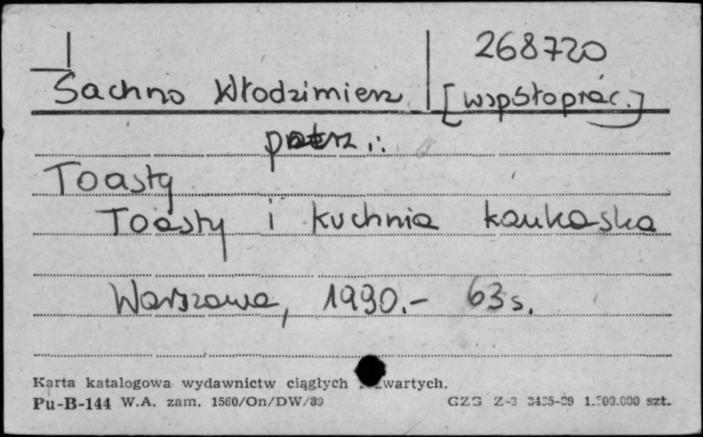 I
268720
Sachno Włodzimierz [współoprac.]
patrz:
Toasty
Toasty i kuchnia kaukaska
Warszawa, 1990.- 63 s.
Karta katalogowa wydawnictw ciągłych zwartych.
Pu-B-144 W.A. zam. 1560/On/DW/89 GZG Z-3 3435-89 1.500.000 szt.